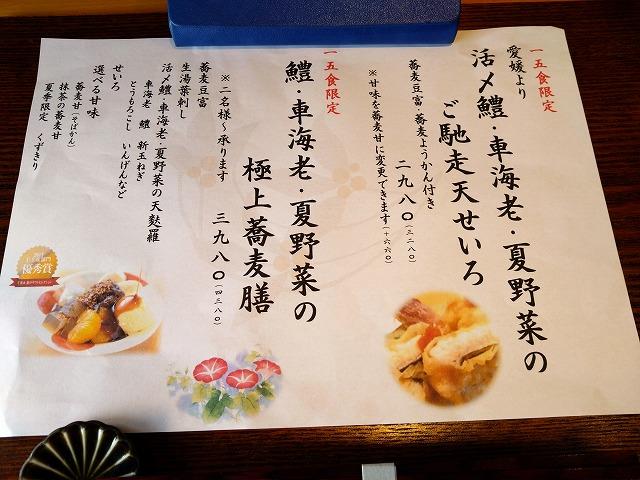 一五食限定
愛媛より
活〆鱧・車海老・夏野菜の
ご馳走天せいろ
蕎麦豆富・蕎麦ようかん付き
二九八〇(三二八〇)
※甘味を蕎麦甘に変更できます(+六六〇)
一五食限定
鱧・車海老・夏野菜の
極上蕎麦膳
※二名様〜承ります
三九八〇(四三八〇)
蕎麦豆富
生湯葉刺し
活〆鱧・車海老・夏野菜の天麩羅
車海老 鱧 新玉ねぎ
とうもろこし いんげんなど
せいろ
選べる甘味
蕎麦甘(そばかん)
抹茶の蕎麦甘
夏季限定 くずきり
優秀賞